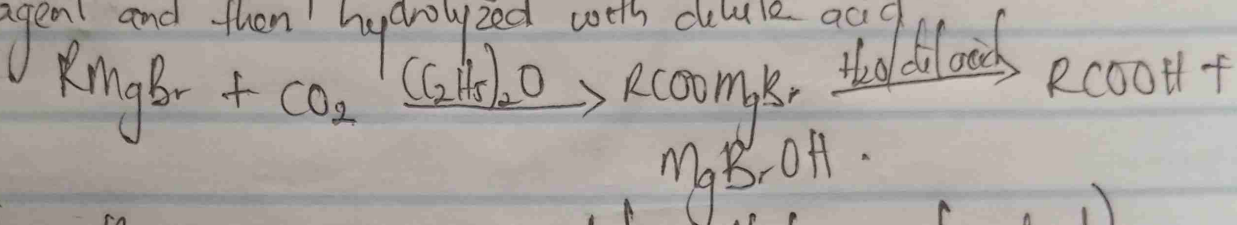 agent and then hydrolyzed with dilute acid
RMgBr + CO₂ (C₂H₅)₂O → RCOOMgBr H₂O/dil acid → RCOOH +
MgBrOH.